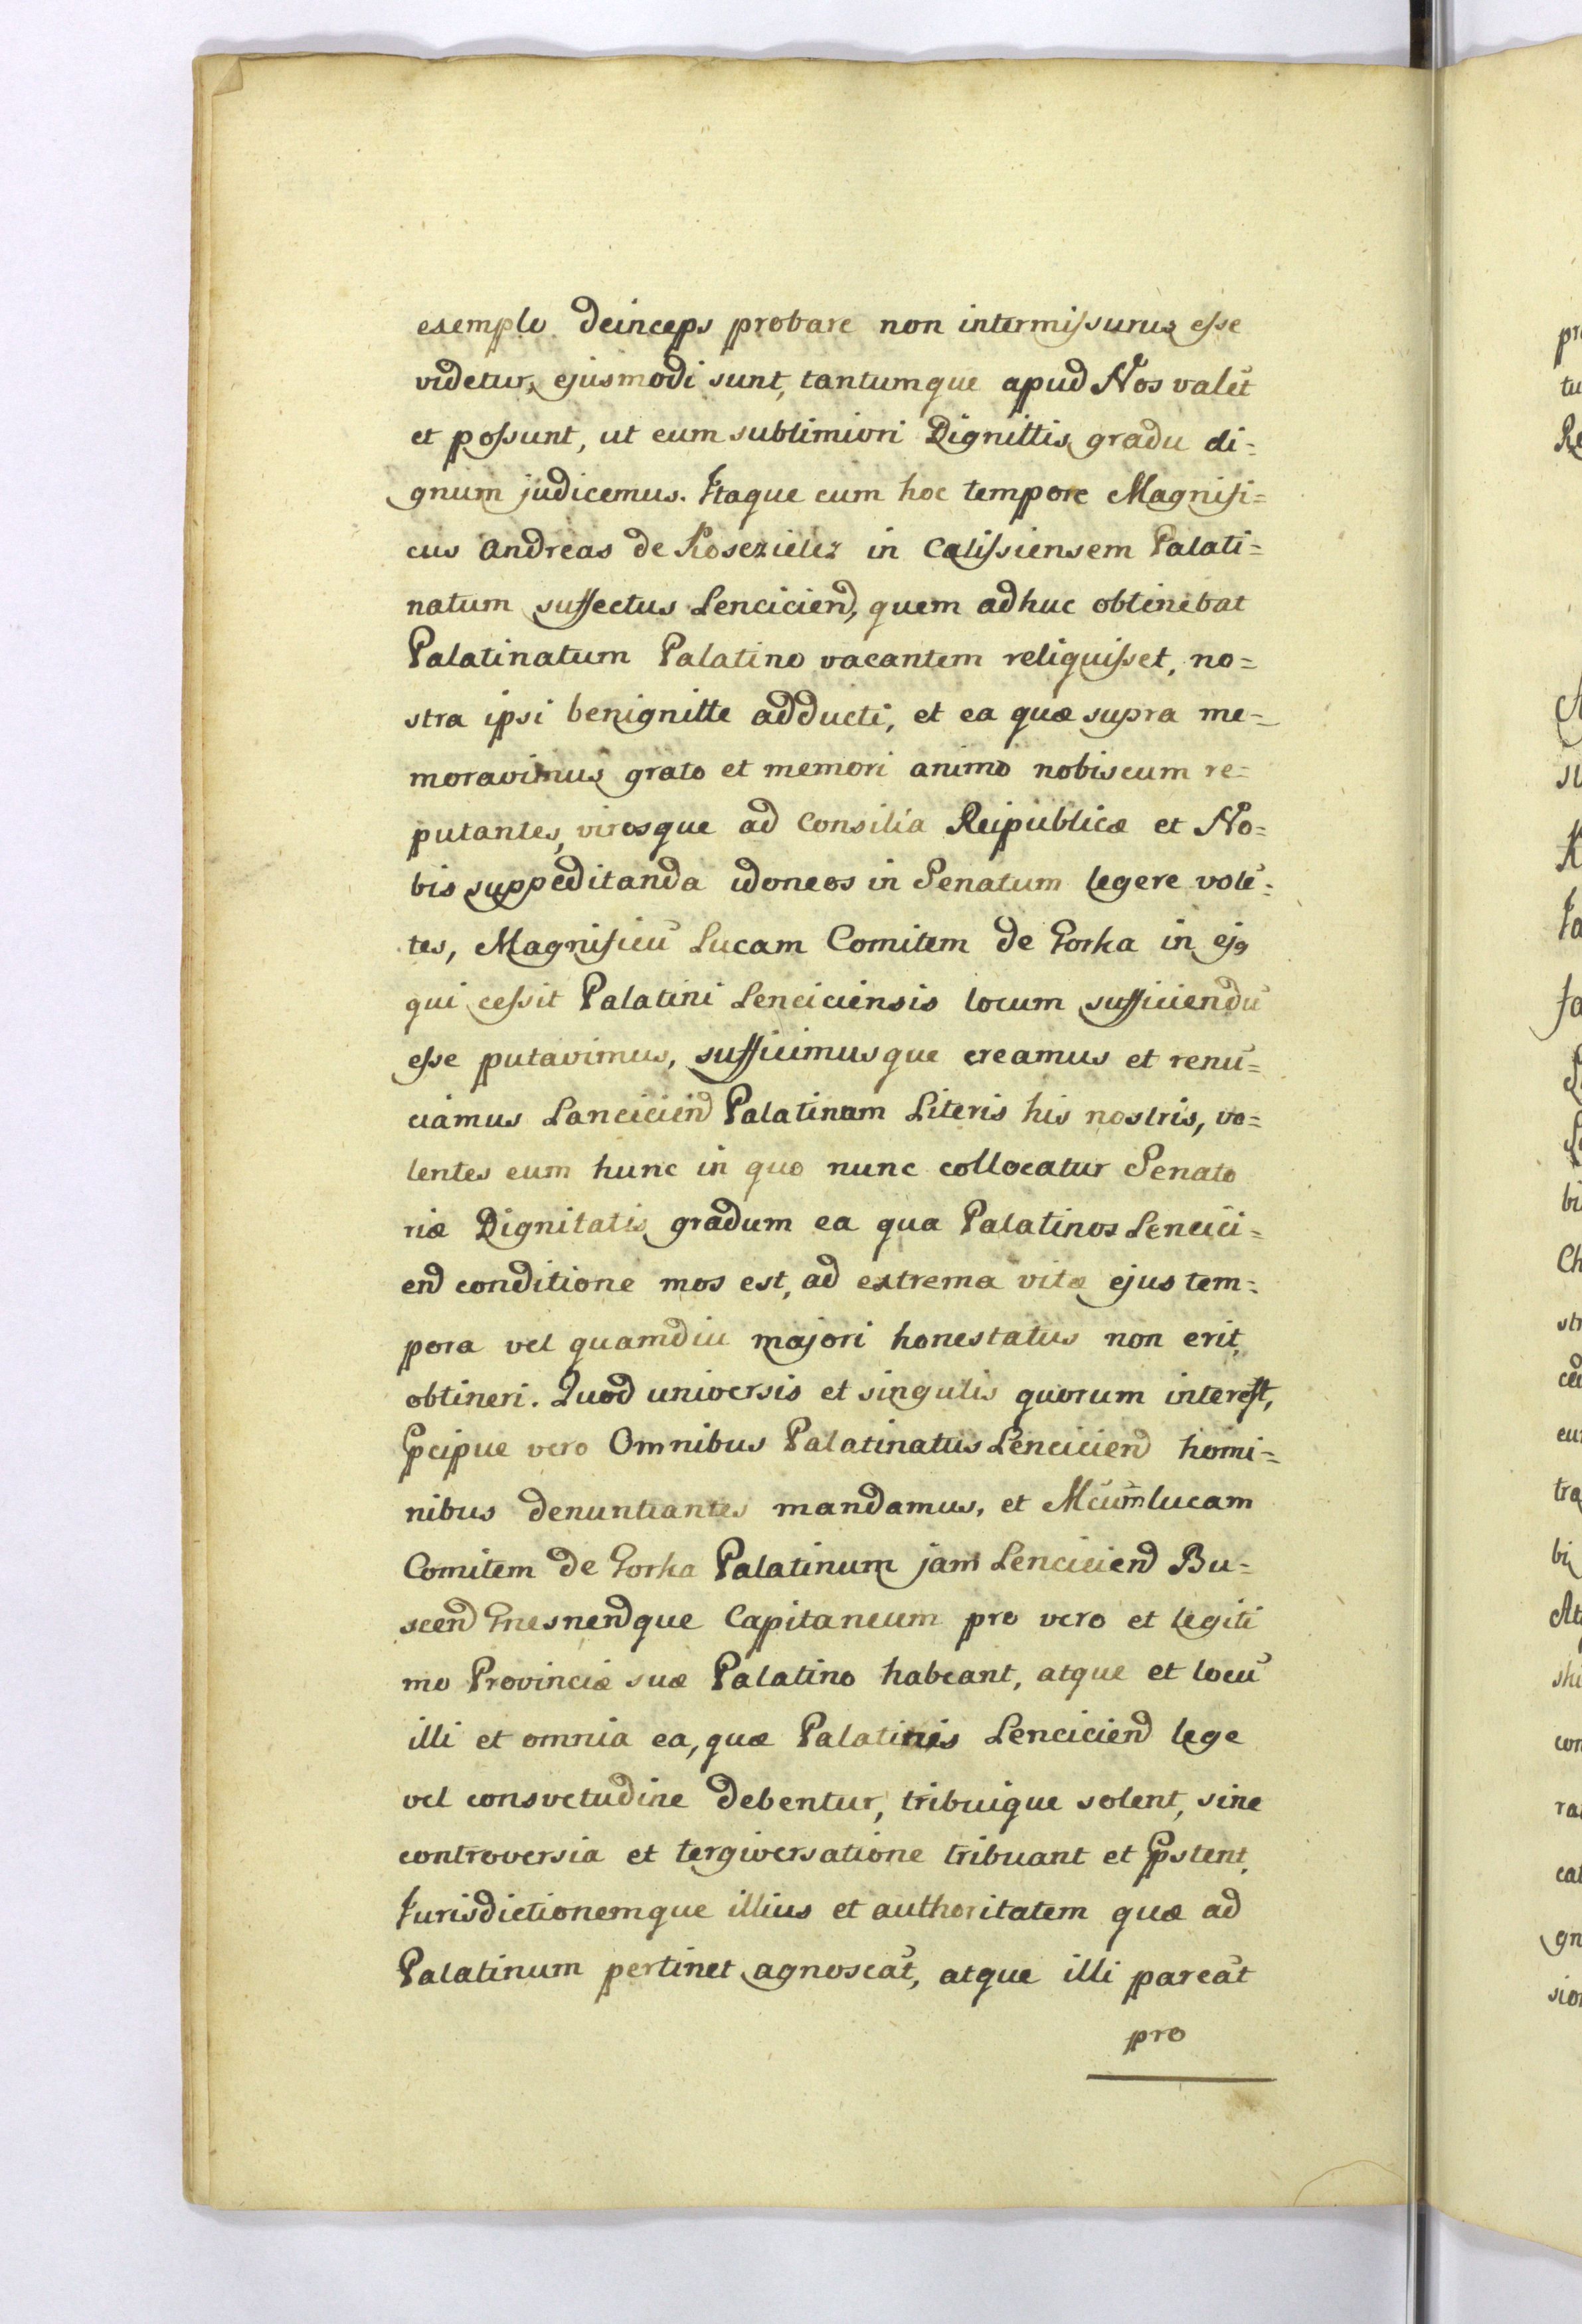 exemplo deinceps probare non intermiſsurus eſse
videtur, ejusmodi sunt, tantumque apud Nos valēt
et poſsunt, ut eum sublimiori Dignittis gradu di=
gnum judicemus. Itaque cum hoc tempore Magnifi=
cus Andreas de Kosczielcz in Caliſsiensem Palati=
natum suffectus Lenciciend, quem adhuc obtinebat
Palatinatum Palatino vacantem reliquiſset, no=
stra ipsi benignitte adducti, et ea quæ supra me=
moravimus grato et memori animo nobiscum re=
putantes, virosque ad Consilia Reipublicæ et No=
bis suppeditanda idoneos in Senatum legere volē=
tes, Magnificū Lucam Comitem de Gorka in ej9
qui ceſsit Palatini Lenciciensis locum sufficiendū
eſse putavimus, sufficimusque creamus et renū=
ciamus Lanciciend Palatinum Literis his nostris, vo=
lentes eum hunc in quo nunc collocatur Senato
riæ Dignitatis gradum ea qua Palatinos Lencici=
end conditione mos est, ad extrema vitæ ejus tem=
pora vel quamdiu majori honestatus non erit,
obtineri. Quod universis et singulis quorum interest,
Ppcipue vero Omnibus Palatinatus Lenciciend homi=
nibus denuntiantes mandamus, et Mcūm Lucam
Comitem de Gorka Palatinum jam Lenciciend Bu=
scend Gnesnendque Capitaneum pro vero et legiti
mo Provinciæ suæ Palatino habeant, atque et locū
illi et omnia ea, quæ Palatinis Lenciciend lege
vel consvetudine debentur, tribuique solent, sine
controversia et tergiversatione tribuant et Ppstent,
Jurisdictionemque illius et authoritatem quæ ad
Palatinum pertinet agnoscāt, atque illi pareāt
pro
pr
tu
Re
su
K
bi
Ch
str
tra
bi
con
ra
cat
gn
sio